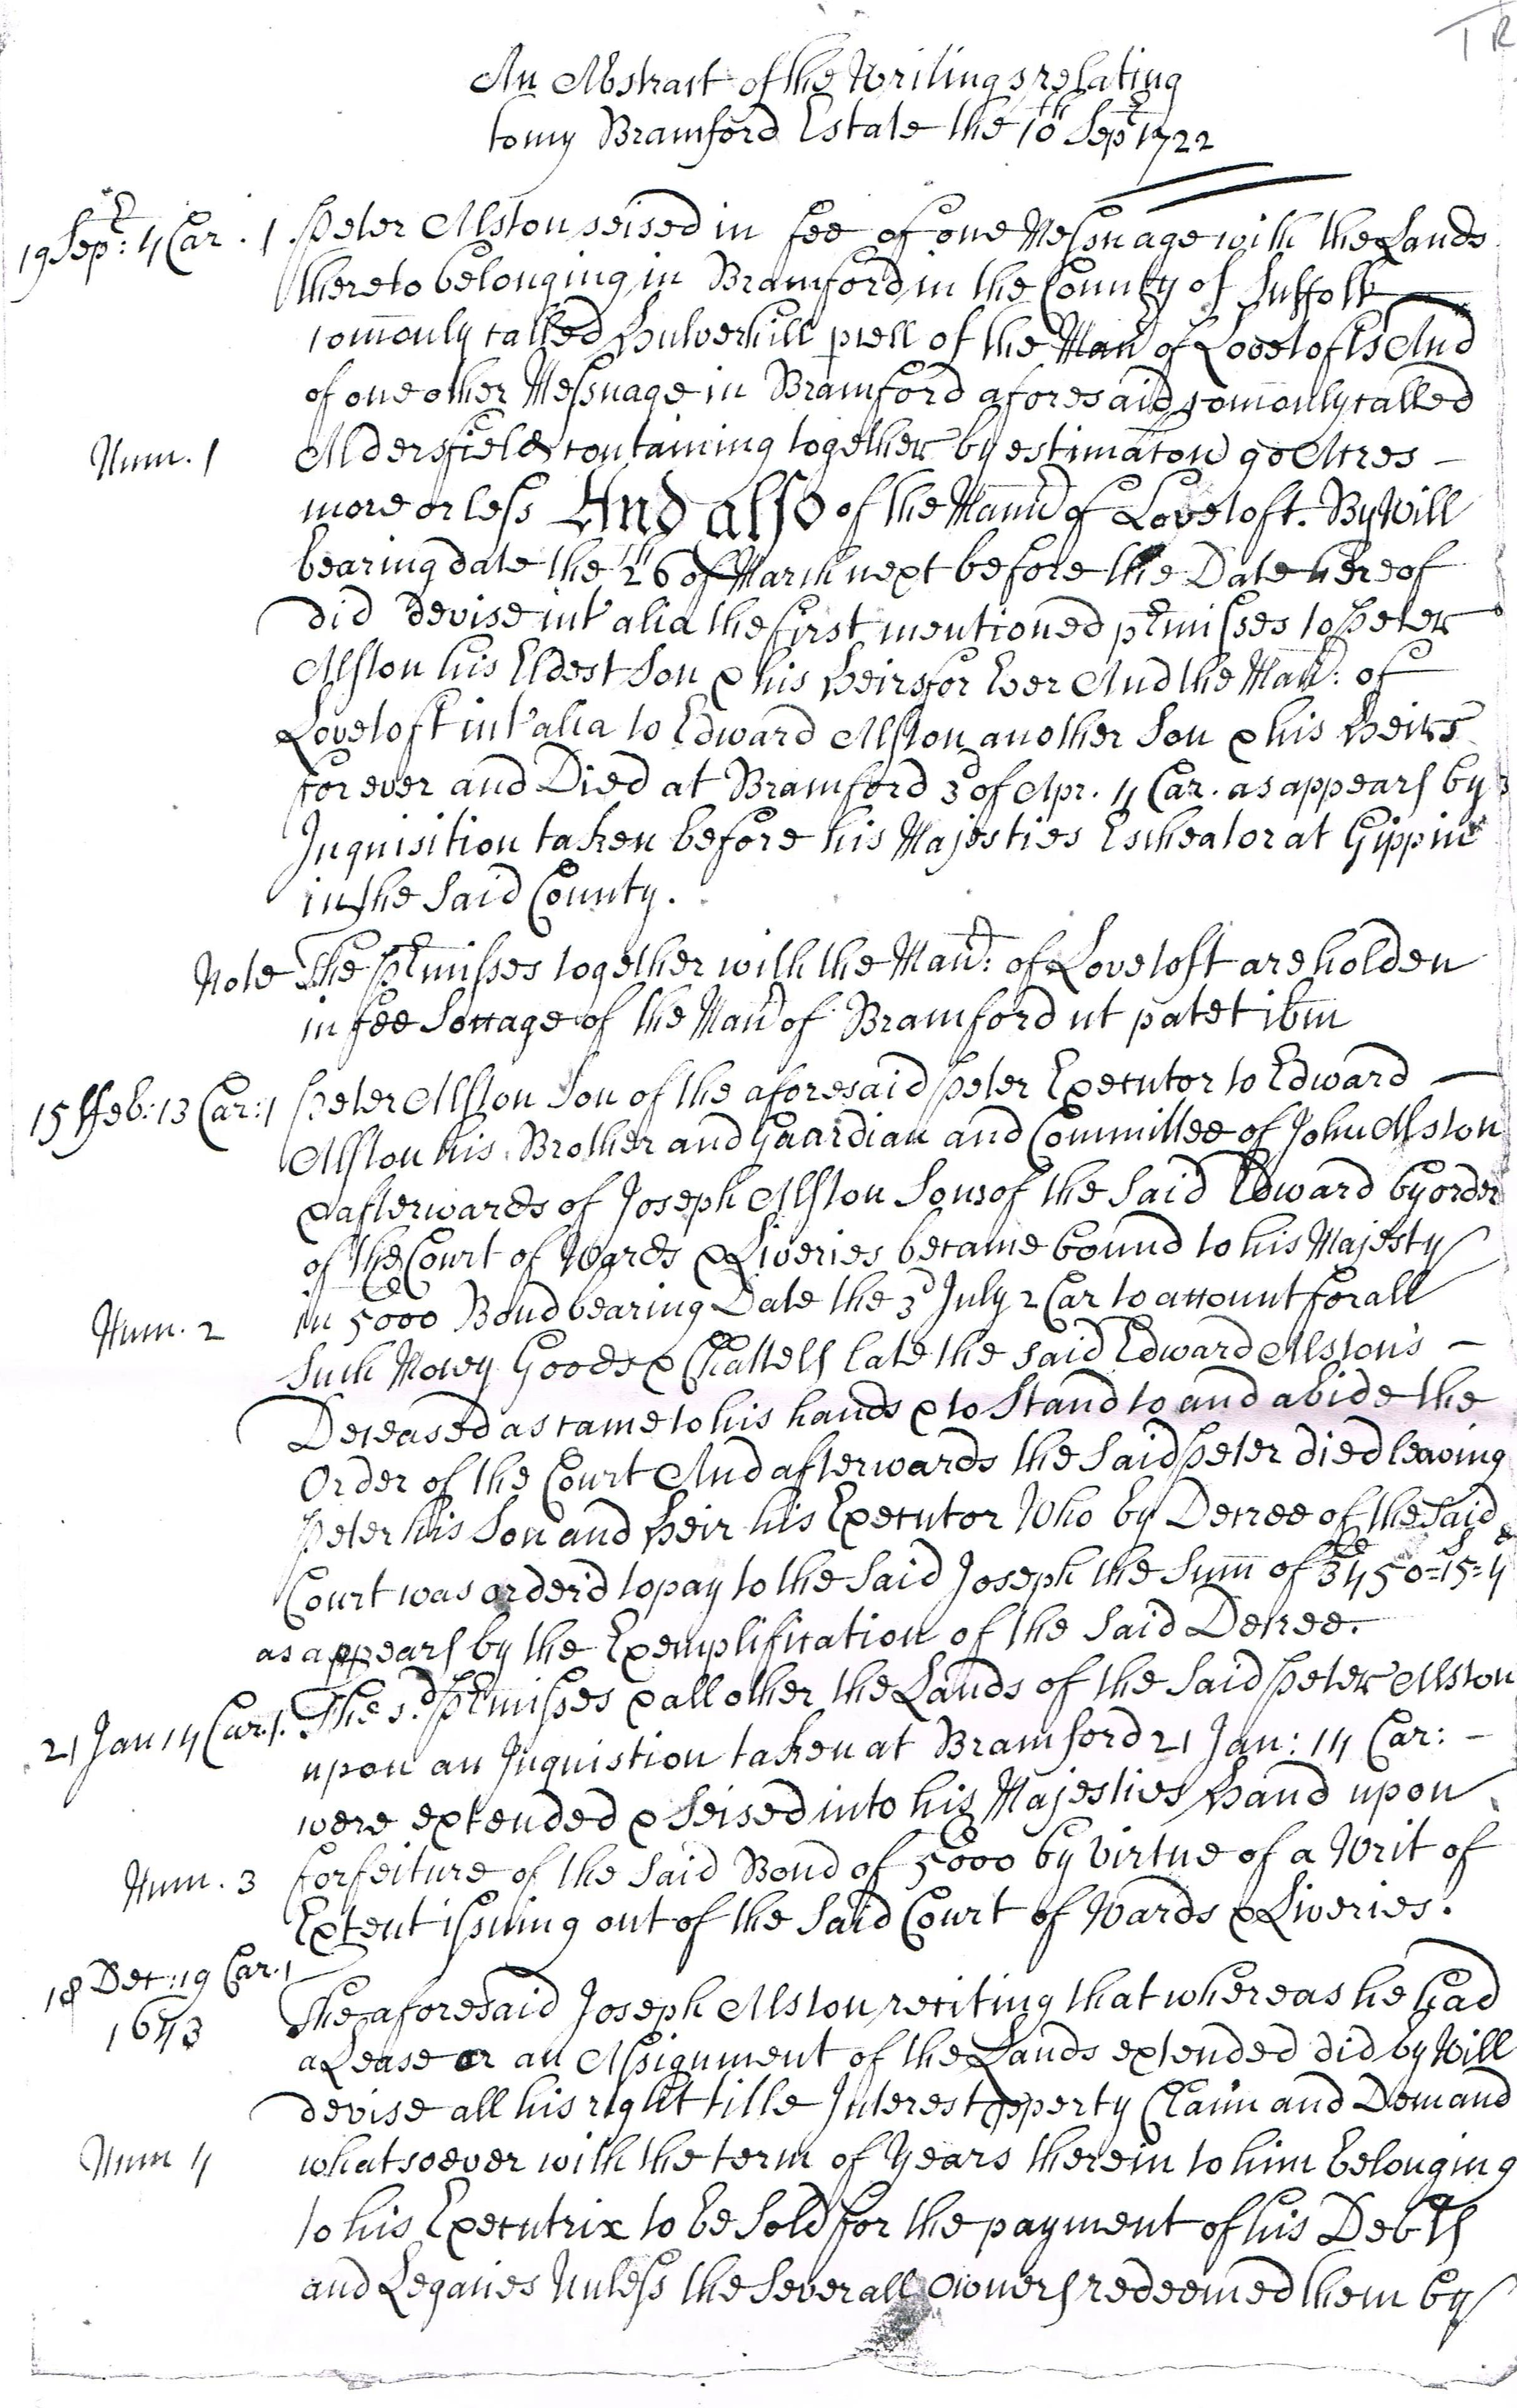 TR
An Abstract of the Writings relating
to my Bramford Estate the 10th Sepr 1722
19 Sepr: 4 Car. 1 Peter Alston seised in fee of one Messuage with the Lands
thereto belonging in Bramford in the County of Suffolk
comonly called Hulverhill pcell of the Manr of Lovetofts And
of one other Messuage in Bramford aforesaid comonly called
Num. 1 Aldersfield containing together by estimaton 90 Acres
more or less And also of the Mannr of Lovetoft. By Will
bearing date the 26th of March next before the Date hereof
did devise intr alia the first mentioned prmisses to Peter
Alston his Eldest Son & his heirs for Ever And the Manr: of
Lovetoft intr alia to Edward Alston another Son & his Heirs
for ever and Died at Bramford 3d of Apr. 4 Car. as appears by
Inquisition taken before his Majesties Escheator at Gippin
in the Said County.
Note The Prmisses together with the Manr: of Lovetoft are holden
in fee Soccage of the Manr of Bramford ut patet ibm
15 ffeb: 13 Car: 1 Peter Alston Son of the aforesaid Peter Executor to Edward
Alston his Brother and Gaardian and Committee of John Alston
& afterwards of Joseph Alston Sons of the Said Edward by order
of the Court of Wards & Liveries became bound to his Majesty
Num. 2 in 5000 Bond bearing Date the 3d July 2 Car to account for all
Such Mony Goods & Chattells late the said Edward Alston's
Deceased as came to his hands & to Stand to and abide the
Order of the Court And afterwards the Said Peter died leaving
Peter his Son and Heir his Executor Who by Decree of the Said
Court was orderd to pay to the Said Joseph the Sum of 3450=15=4
as appears by the Exemplification of the Said Decree.
21 Jan 14 Car. 1. The sd Prmisses & all other the Lands of the Said Peter Alston
upon an Inquistion taken at Bramford 21 Jan: 14 Car:
were extended & Seised into his Majesties Hand upon
Num. 3 forfeiture of the Said Bond of 5000 by Virtue of a Writ of
Extent issuing out of the Said Court of Wards & Liveries.
18 Dec: 19 Car. 1
1643 The aforesaid Joseph Alston reciting that whereas he had
a Lease or an Assignment of the Lands extended did by Will
devise all his right title Interest pperty Claim and Demand
Num 4 whatsoever with the term of Years therein to him belonging
to his Executrix to be Sold for the payment of his Debts
and Legacies Unless the Severall Owners redeemed them by